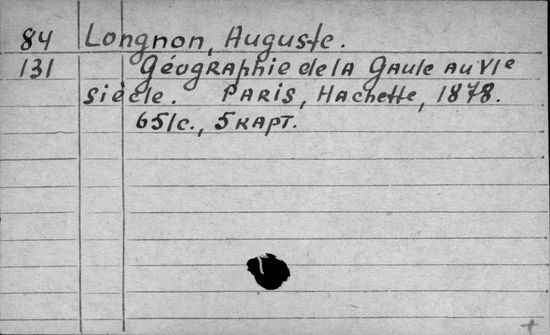 84 Longnon, Auguste.
131 Géographie de la Gaule au VIe
siècle. Paris, Hachette, 1878.
651c., 5 карт.